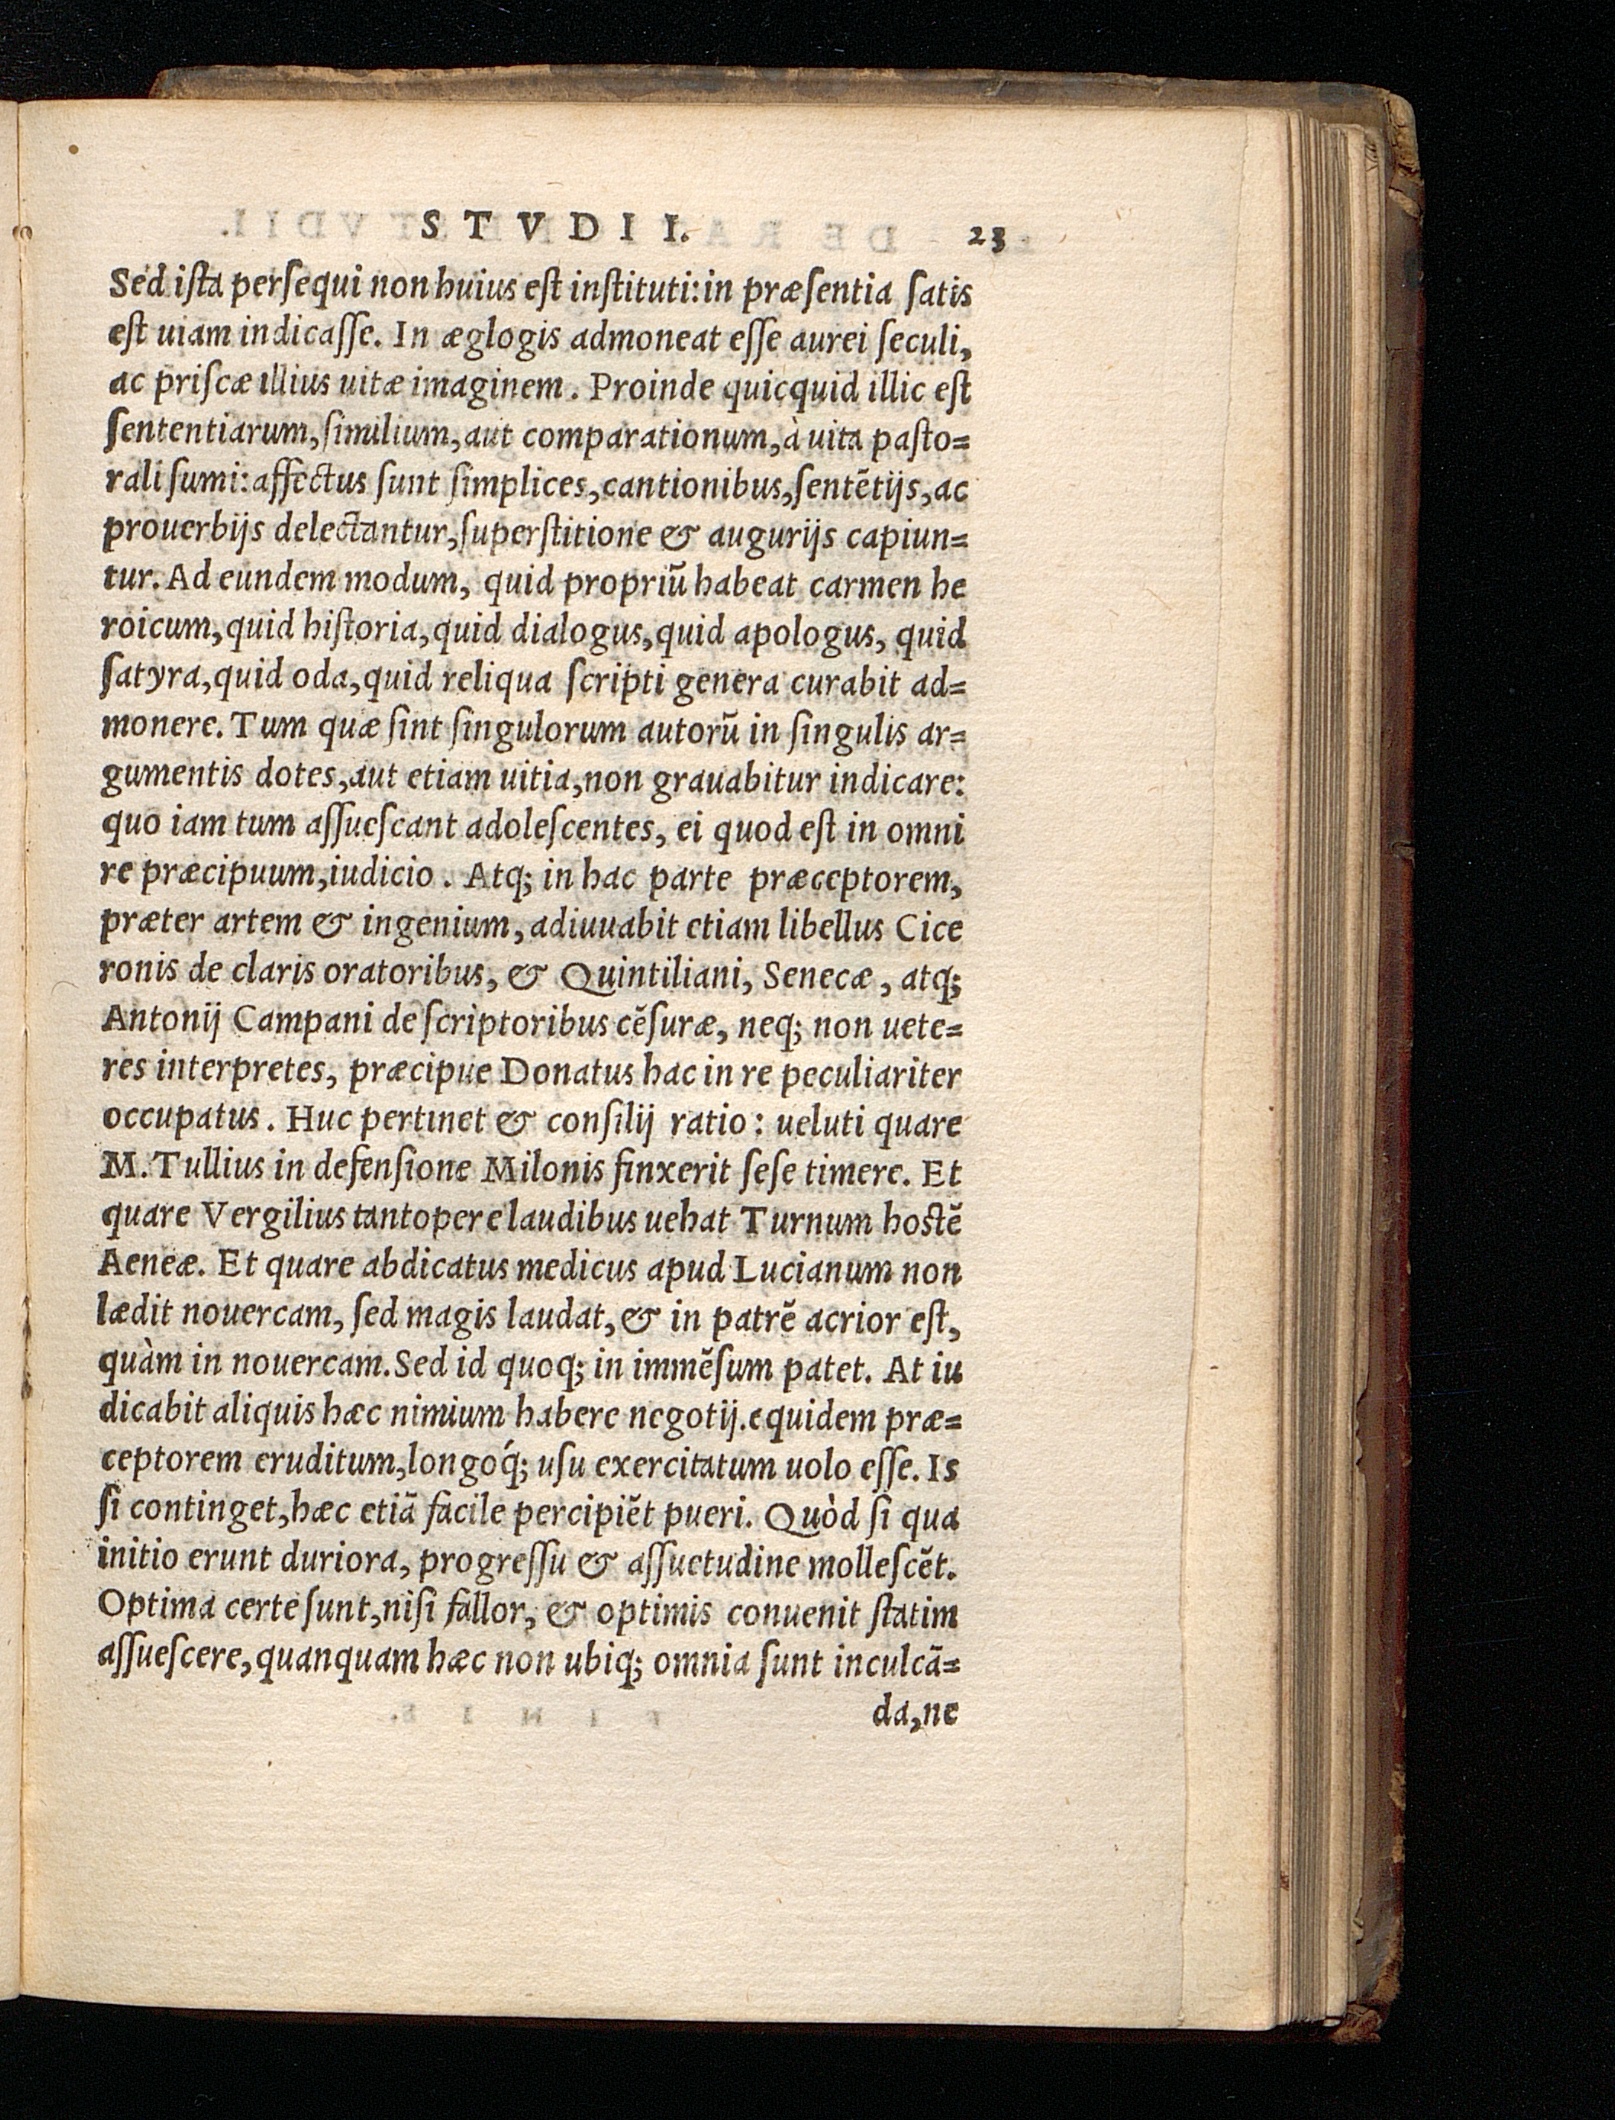 STVDII. 23
Sed ista persequi non huius est instituti: in præsentia satis
est uiam indicasse. In æglogis admoneat esse aurei seculi,
ac priscæ illius uitæ imaginem. Proinde quicquid illic est
sententiarum, similium, aut comparationum, à uita pasto=
rali sumi: affectus sunt simplices, cantionibus, sentētijs, ac
prouerbijs delectantur, superstitione & augurijs capiun=
tur. Ad eundem modum, quid propriū habeat carmen he
roicum, quid historia, quid dialogus, quid apologus, quid
satyra, quid oda, quid reliqua scripti genera curabit ad=
monere. Tum quæ sint singulorum autorū in singulis ar=
gumentis dotes, aut etiam uitia, non grauabitur indicare:
quo iam tum assuescant adolescentes, ei quod est in omni
re præcipuum, iudicio. Atq; in hac parte præceptorem,
præter artem & ingenium, adiuuabit etiam libellus Cice
ronis de claris oratoribus, & Quintiliani, Senecæ, atq;
Antonij Campani de scriptoribus cēsuræ, neq; non uete=
res interpretes, præcipue Donatus hac in re peculiariter
occupatus. Huc pertinet & consilij ratio: ueluti quare
M. Tullius in defensione Milonis finxerit sese timere. Et
quare Vergilius tantopere laudibus uehat Turnum hostē
Aeneæ. Et quare abdicatus medicus apud Lucianum non
lædit nouercam, sed magis laudat, & in patrē acrior est,
quàm in nouercam. Sed id quoq; in immēsum patet. At iu
dicabit aliquis hæc nimium habere negotij. equidem præ=
ceptorem eruditum, longoq́; usu exercitatum uolo esse. Is
si continget, hæc etiā facile percipiēt pueri. Quòd si qua
initio erunt duriora, progressu & assuetudine mollescēt.
Optima certe sunt, nisi fallor, & optimis conuenit statim
assuescere, quanquam hæc non ubiq; omnia sunt inculcā=
da, ne